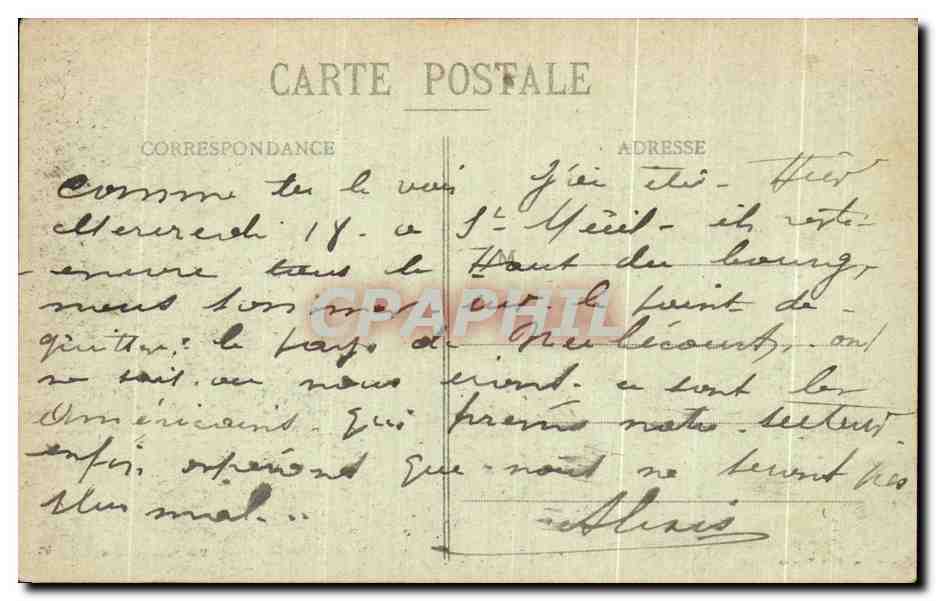 CARTE POSTALE
CORRESPONDANCE ADRESSE
comme tu le vois J'ai été - Hier
Mercredi 18 - a St Méïil - il reste -
encore tous le Haut du bourg,
nous sommes sur le point de -
quitter le pays de Neulécourt, - ont
ne sait ou nous iront - ce sont les
Américains - qui prenés notre - secteur
enfin espéront que - nous ne seront pas
plus mal...
Alexis
CPAPHIL